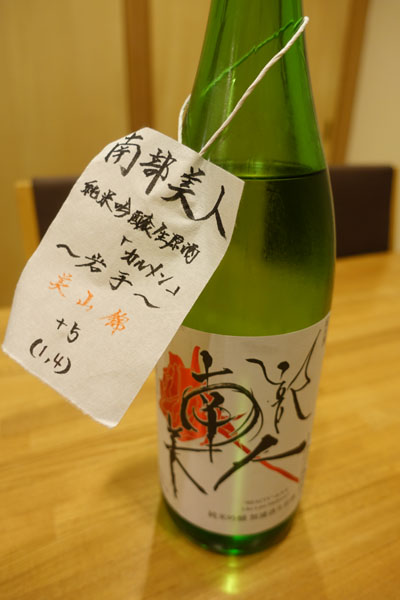 南部美人
純米吟醸生原酒
「カルメン」
〜岩手〜
美山錦
+5
(1,4)
南部美人
純米吟醸 無濾過生原酒